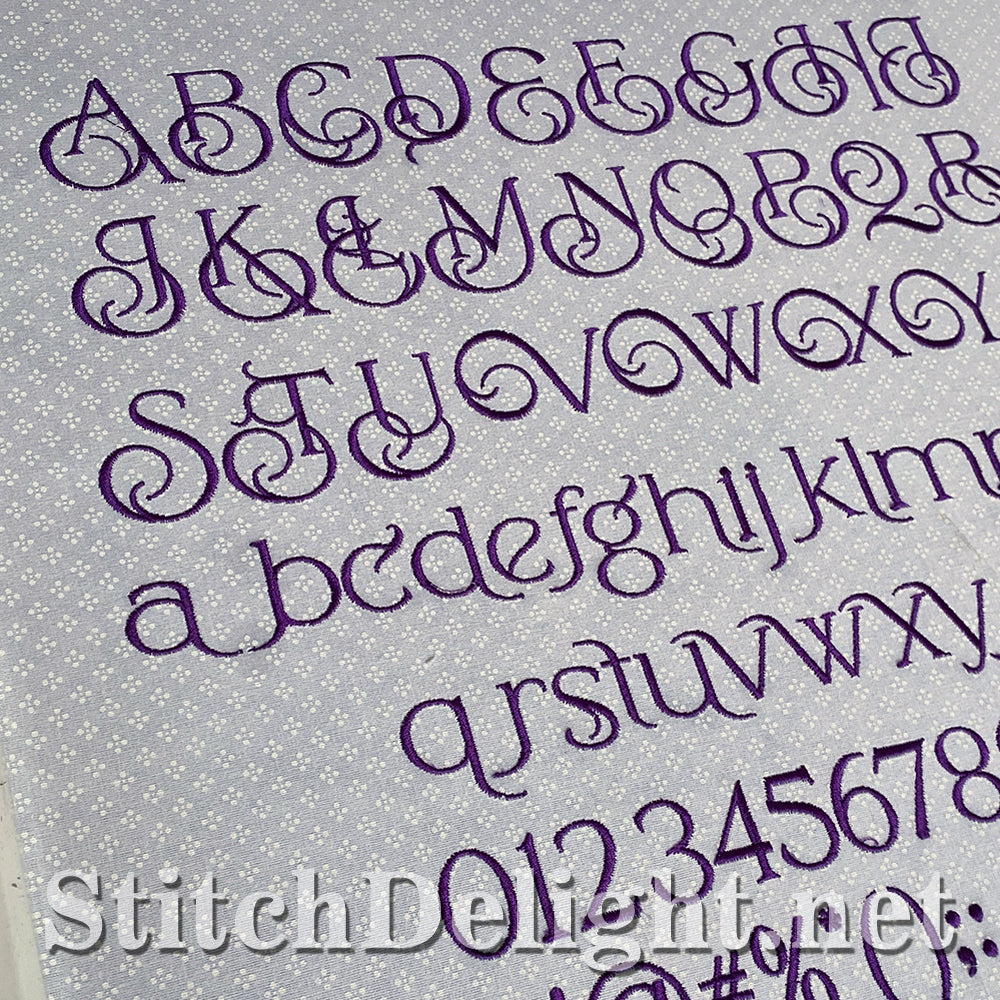 ABCDEFGHI
JKLMNOPQR
STUVWXY
abcdefghijklm
qrstuvwxy
012345678
StitchDelight.net
@#%():